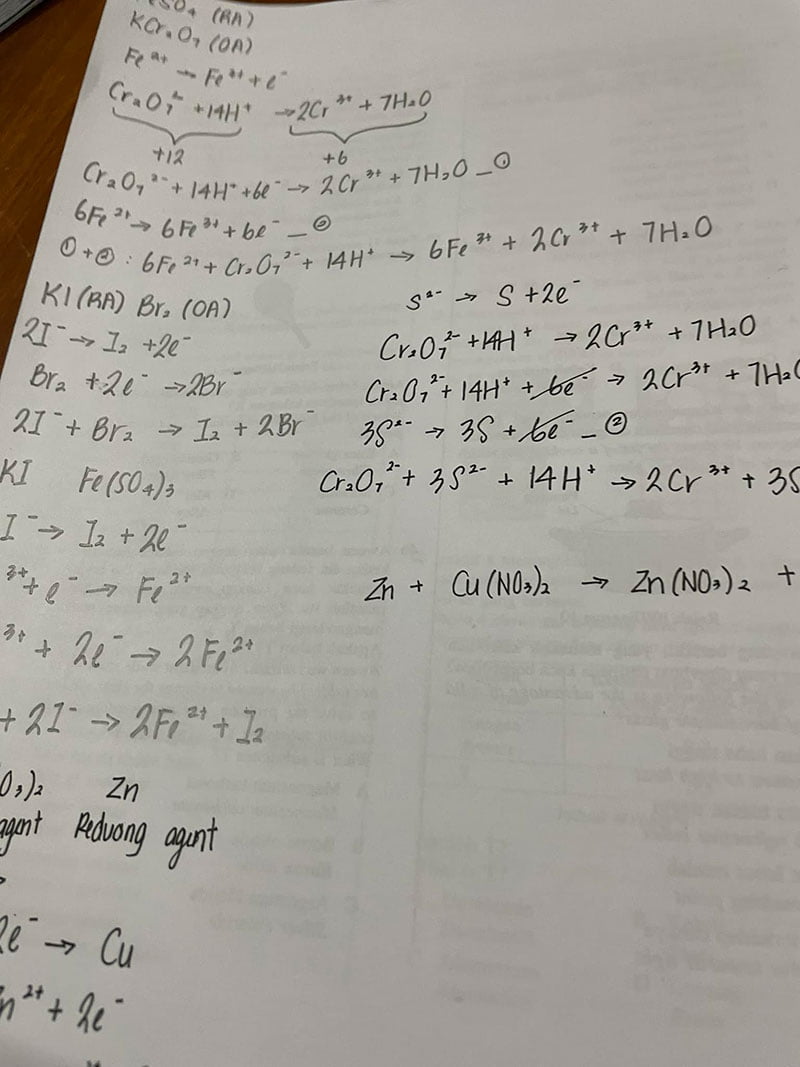 SO₄ (RA)
KCr₂O₇ (OA)
Fe²⁺ → Fe³⁺ + e⁻
Cr₂O₇²⁻ + 14H⁺ → 2Cr³⁺ + 7H₂O
+12 +6
Cr₂O₇²⁻ + 14H⁺ + 6e⁻ → 2Cr³⁺ + 7H₂O – ①
6Fe²⁺ → 6Fe³⁺ + 6e⁻ – ②
① + ② : 6Fe²⁺ + Cr₂O₇²⁻ + 14H⁺ → 6Fe³⁺ + 2Cr³⁺ + 7H₂O
KI (RA) Br₂ (OA)
2I⁻ → I₂ + 2e⁻
Br₂ + 2e⁻ → 2Br⁻
2I⁻ + Br₂ → I₂ + 2Br⁻
KI Fe(SO₄)₃
I⁻ → I₂ + 2e⁻
³⁺ + e⁻ → Fe²⁺
³⁺ + 2e⁻ → 2Fe²⁺
+ 2I⁻ → 2Fe²⁺ + I₂
O₃)₂ Zn
agent Reduong agent
2e⁻ → Cu
n²⁺ + 2e⁻
S²⁻ → S + 2e⁻
Cr₂O₇²⁻ + 14H⁺ → 2Cr³⁺ + 7H₂O
Cr₂O₇²⁻ + 14H⁺ + 6e⁻ → 2Cr³⁺ + 7H₂O
3S²⁻ → 3S + 6e⁻ – ②
Cr₂O₇²⁻ + 3S²⁻ + 14H⁺ → 2Cr³⁺ + 3S
Zn + Cu(NO₃)₂ → Zn(NO₃)₂ +